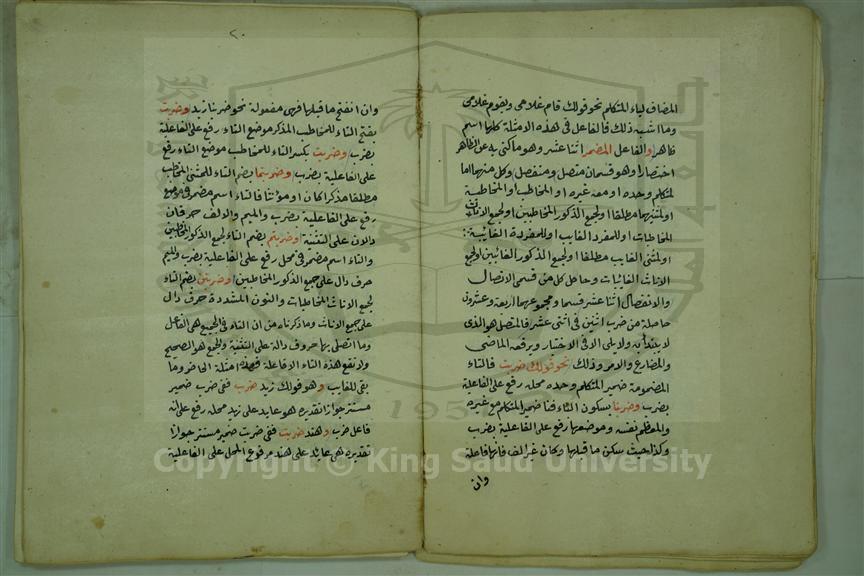 المضاف لياء المتكلم نحو قولك قام غلامى ويقوم غلامى
وما اشبه ذلك فالفاعل فى هذه الامثلة كلها اسم
ظاهر والفاعل المضمر اثنا عشر وهو ما كنى به عن الظاهر
اختصارا وهو قسمان متصل ومنفصل وكل منهما اما
لمتكلم وحده او معه غيره او المخاطب او المخاطبة
او لمثنيهما مطلقا او لجمع الذكور المخاطبين او لجمع الاناث
المخاطبات او للمفرد الغايب او للمفردة الغايبة
او لمثنى الغايب مطلقا او لجمع الذكور الغائبين او لجمع
الاناث الغائبات وحاصل كل من قسمى الاتصال
والانفصال اثنا عشر قسما ومجموعهما اربعة وعشرون
حاصلة من ضرب اثنين فى اثنى عشر فالمتصل هو الذى
لا يبتدأ به ولا يلى الا فى الاختيار ويرفعه الماضى
والمضارع والامر وذلك نحو قولك ضربت فالتاء
المضمومة ضمير المتكلم وحده محله رفع على الفاعلية
بضرب وضربنا بسكون الباء فنا ضمير المتكلم مع غيره
والمعظم نفسه وموضعها رفع على الفاعلية بضرب
وكذا حيث سكن ما قبلها وكان غير الف فانها فاعلة
وان
٢٠
وان انفتح ما قبلها فهى مفعولة نحو ضربنا زيد وضربت
بفتح التاء للمخاطب المذكر موضع التاء رفع على الفاعلية
بضرب وضربت بكسر التاء للمخاطب موضع التاء رفع
على الفاعلية بضرب وضربتما بضم التاء للمثنى المخاطب
مطلقا مذكرا كان او مؤنثا فالتاء اسم مضمر فى موضع
رفع على الفاعلية بضرب والميم والالف حرفان
دالان على التثنية وضربتم بضم التاء لجمع الذكور المخاطبين
والتاء اسم مضمر فى محل رفع على الفاعلية بضرب والميم
حرف دال على جمع الذكور المخاطبين وضربتن بضم التاء
لجمع الاناث المخاطبات والنون المشددة حرف دال
على جمع الاناث وما ذكرناه من ان التاء فى الجميع هى الفاعل
وما اتصل بها حروف دالة على التثنية والجمع هو الصحيح
ولا تقع هذه التاء الا فاعلة فهذه امثلة الحاضر وما
بقى للغايب وهو قولك زيد ضرب ففى ضرب ضمير
مستتر جوازا تقديره هو عايد على زيد محله رفع على انه
فاعل ضرب وهند ضربت ففى ضربت ضمير مستتر جوازا
تقديره هى عايد على هند مرفوع المحل على الفاعلية
Copyright © King Saud University
1957